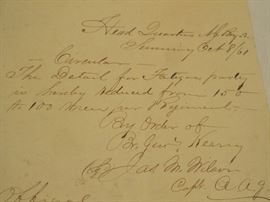 Head Quarters
Seminary Oct 8/61
Circular
The Detail for Fatigue party
is hereby reduced from 150
to 100 men per Regiment
By Order of
Br. Genl. Kearny
Jas M Wilson
Capt. A A G